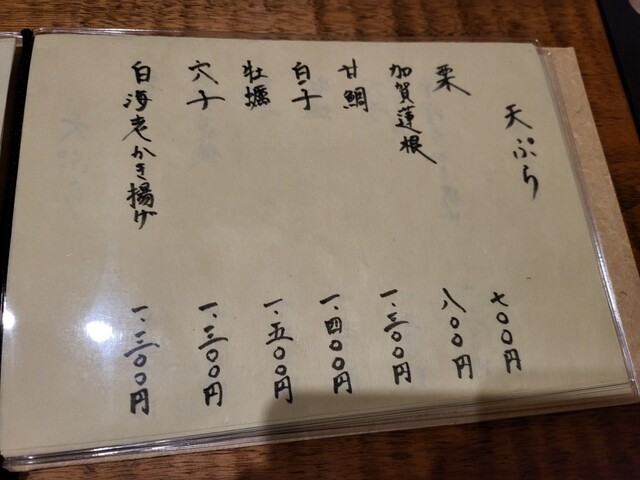 天ぷら
栗 七〇〇円
加賀蓮根 八〇〇円
甘鯛 一、三〇〇円
白子 一、四〇〇円
牡蠣 一、五〇〇円
穴子 一、三〇〇円
白海老かき揚げ 一、三〇〇円